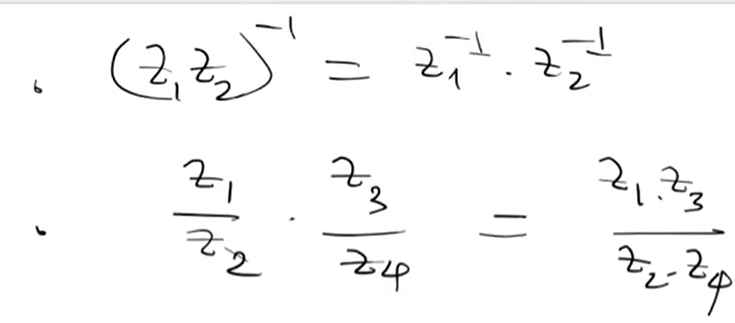 . (z₁z₂)⁻¹ = z₁⁻¹ . z₂⁻¹
. z₁/z₂ . z₃/z₄ = z₁.z₃/z₂.z₄